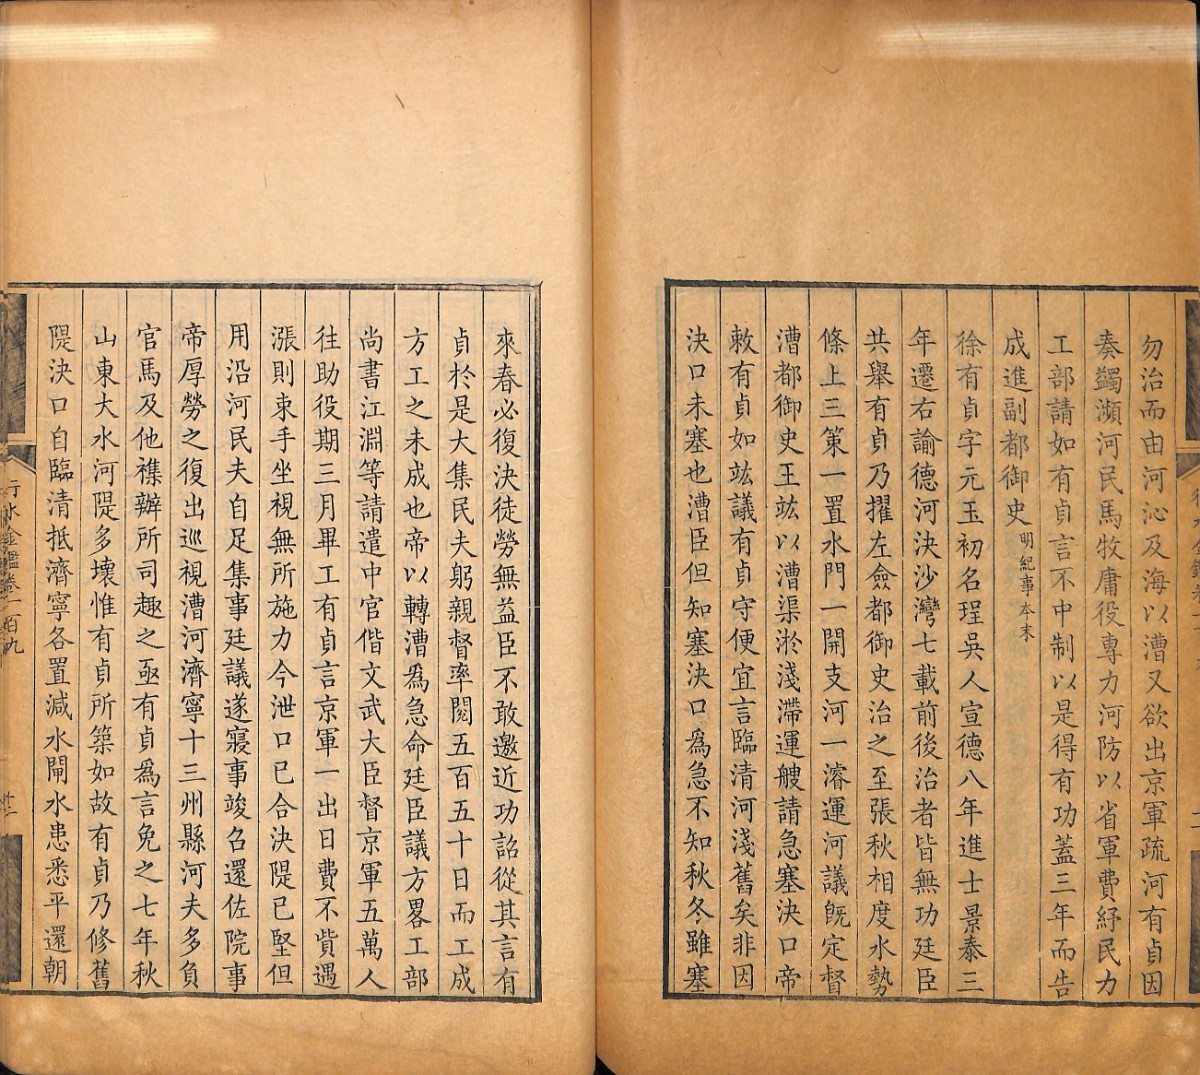 勿治而由河沁及海以漕又欲出京軍疏河有貞因
奏蠲瀕河民馬牧庸役專力河防以省軍費紓民力
工部請如有貞言不中制以是得有功蓋三年而告
成進副都御史明紀事本末
徐有貞字元玉初名珵吳人宣德八年進士景泰三
年遷右諭德河決沙灣七載前後治者皆無功廷臣
共舉有貞乃擢左僉都御史治之至張秋相度水勢
條上三策一置水門一開支河一濬運河議旣定督
漕都御史王竑以漕渠淤淺滯運艘請急塞決口帝
敕有貞如竑議有貞守便宜言臨清河淺舊矣非因
決口未塞也漕臣但知塞決口爲急不知秋冬雖塞
來春必復決徒勞無益臣不敢邀近功詔從其言有
貞於是大集民夫躬親督率閱五百五十日而工成
方工之未成也帝以轉漕爲急命廷臣議方畧工部
尚書江淵等請遣中官偕文武大臣督京軍五萬人
往助役期三月畢工有貞言京軍一出日費不貲遇
漲則束手坐視無所施力今泄口已合決隄已堅但
用沿河民夫自足集事廷議遂寢事竣召還佐院事
帝厚勞之復出巡視漕河濟寧十三州縣河夫多負
官馬及他襍辦所司趣之亟有貞爲言免之七年秋
山東大水河隄多壞惟有貞所築如故有貞乃修舊
隄決口自臨清抵濟寧各置減水閘水患悉平還朝
行水金鑑卷一百九